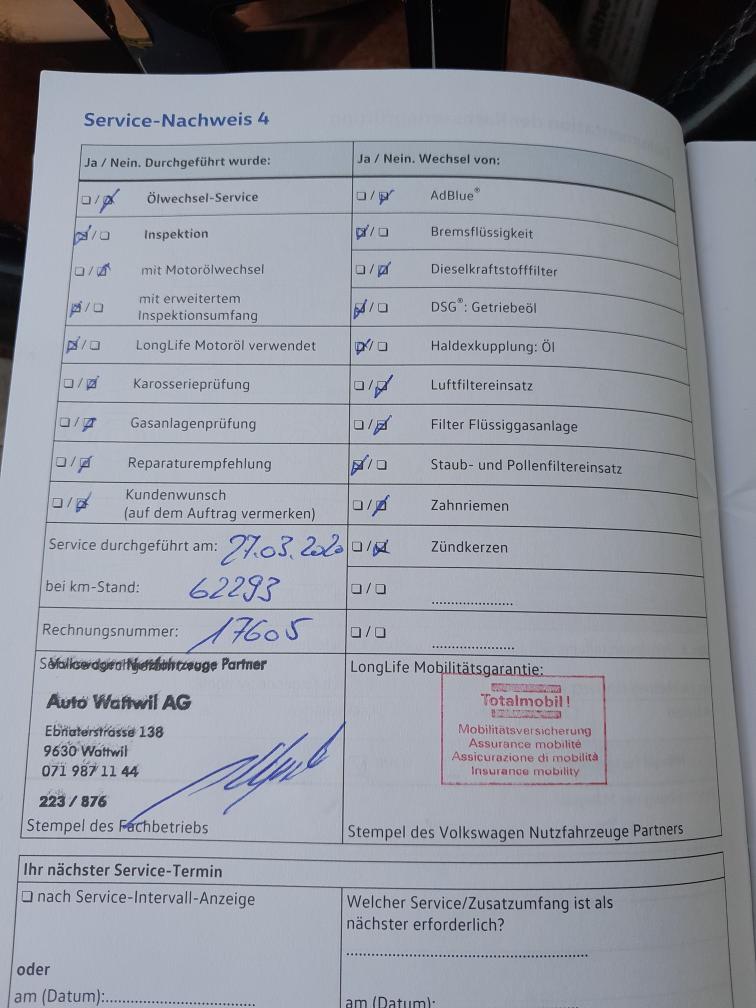 Service-Nachweis 4
Ja / Nein. Durchgeführt wurde:
Ja / Nein. Wechsel von:
Ölwechsel-Service
AdBlue®
Inspektion
Bremsflüssigkeit
mit Motorölwechsel
Dieselkraftstofffilter
mit erweitertem
Inspektionsumfang
DSG®: Getriebeöl
LongLife Motoröl verwendet
Haldexkupplung: Öl
Karosserieprüfung
Luftfiltereinsatz
Gasanlagenprüfung
Filter Flüssiggasanlage
Reparaturempfehlung
Staub- und Pollenfiltereinsatz
Kundenwunsch
(auf dem Auftrag vermerken)
Zahnriemen
Service durchgeführt am: 27.03.2020
Zündkerzen
bei km-Stand: 62293
Rechnungsnummer: 17605
Volkswagen Nutzfahrzeuge Partner
Auto Wattwil AG
Ebnaterstrasse 138
9630 Wattwil
071 987 11 44
223 / 876
Stempel des Fachbetriebs
LongLife Mobilitätsgarantie:
Totalmobil!
Mobilitätsversicherung
Assurance mobilité
Assicurazione di mobilità
Insurance mobility
Stempel des Volkswagen Nutzfahrzeuge Partners
Ihr nächster Service-Termin
nach Service-Intervall-Anzeige
Welcher Service/Zusatzumfang ist als
nächster erforderlich?
oder
am (Datum):
am (Datum):